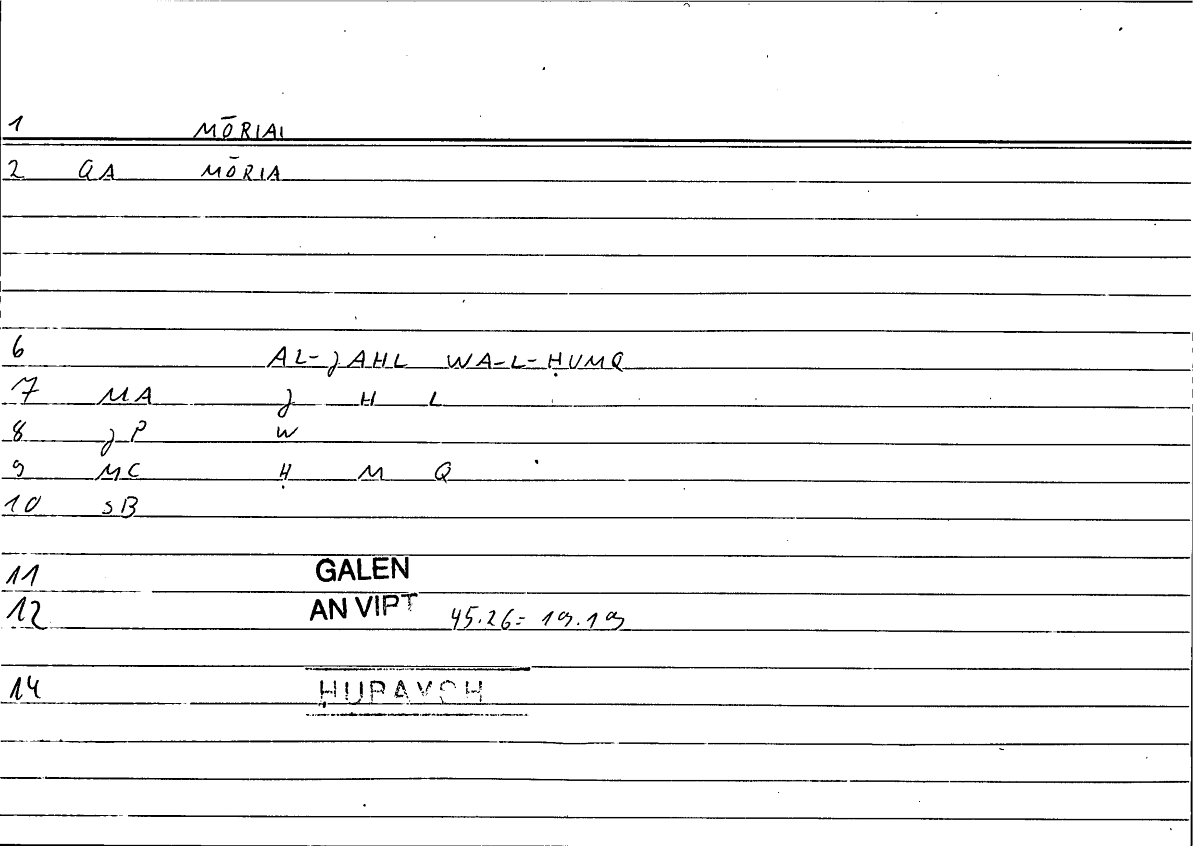 1 MŌRIAI
2 GA MŌRIA
6 AL-JAHL WA-L-ḤUMQ
7 MA J H L
8 JP W
9 MC Ḥ M Q
10 SB
11 GALEN
12 AN VIPT 45.26= 19.19
14 ḤUPAYSH